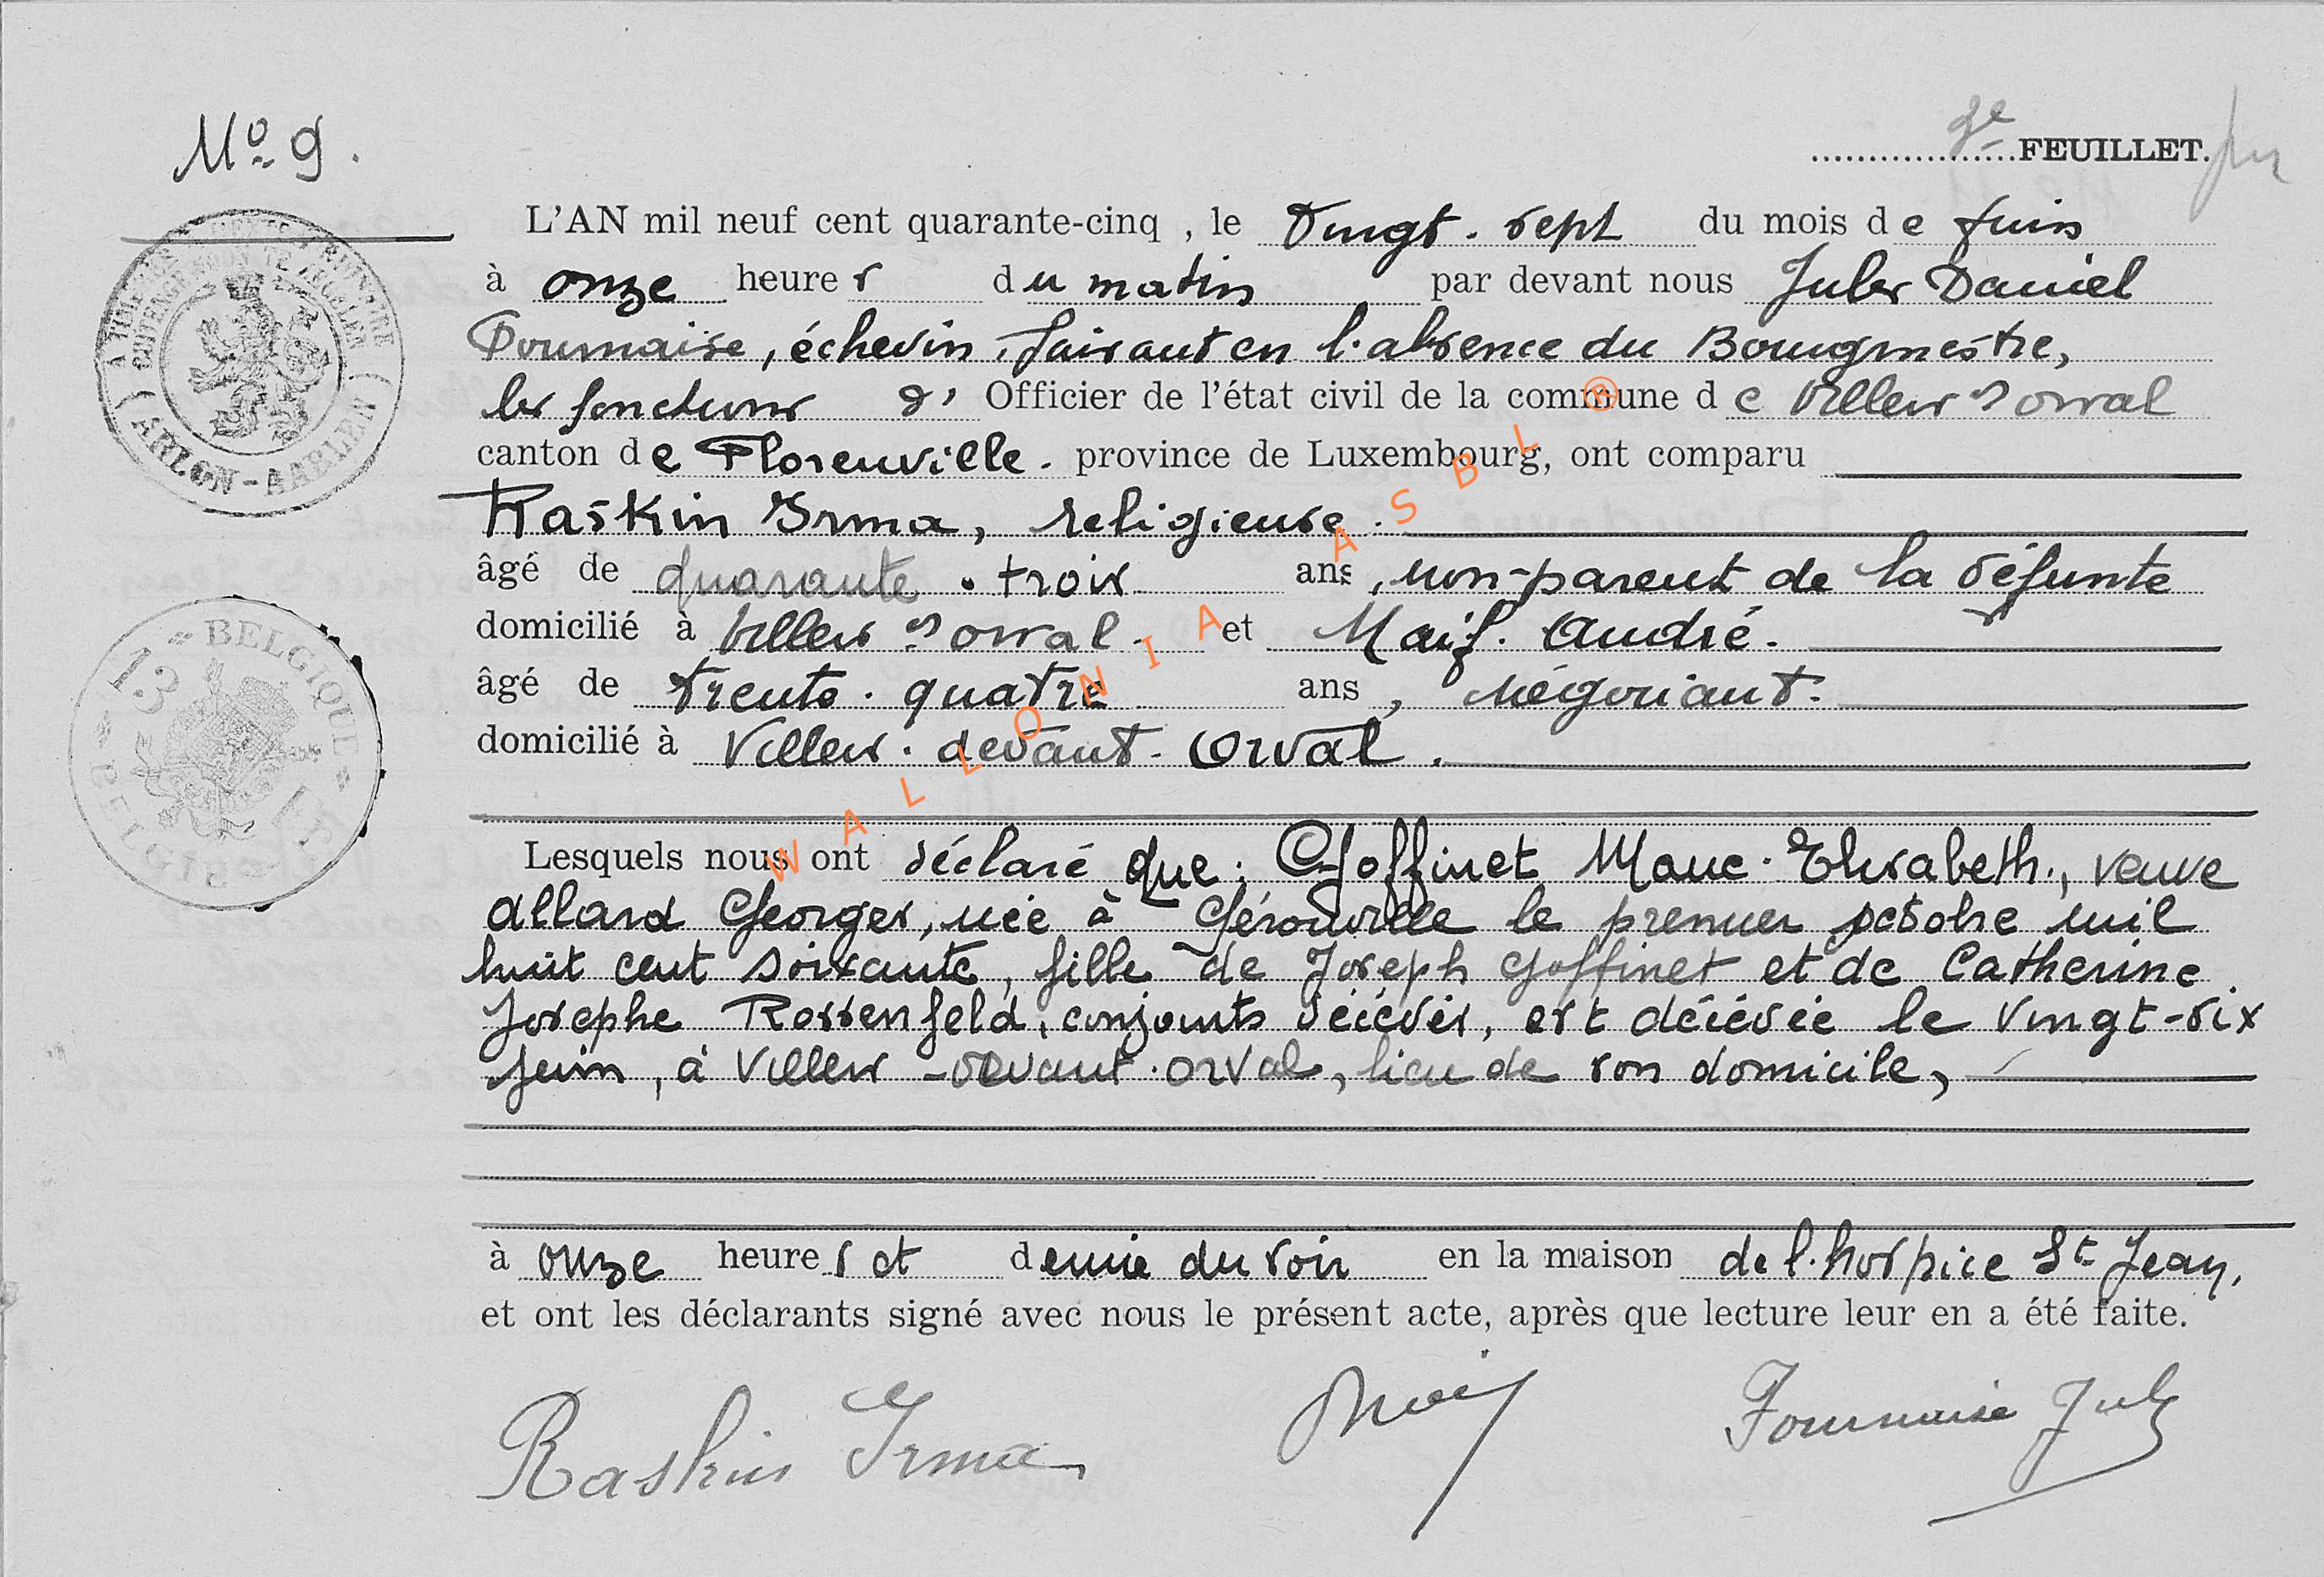 No 9.
3e FEUILLET.
L'AN mil neuf cent quarante-cinq, le Vingt-sept du mois de Juin
à onze heures du matin par devant nous Jules Daniel
Fournaise, échevin, faisant en l'absence du Bourgmestre,
les fonctions d'Officier de l'état civil de la commune de Villers dt orval
canton de Florenville. province de Luxembourg, ont comparu
Raskin Irma, religieuse.
âgé de quarante-trois ans, non-parent de la défunte
domicilié à Villers dt orval et André.
âgé de trente-quatre ans, négociant.
domicilié à Villers-devant-Orval.
Lesquels nous ont déclaré que: Goffinet Marie-Elisabeth, veuve
Allard Georges, née à Gérouville le premier octobre mil
huit cent soixante, fille de Joseph Goffinet et de Catherine
Josephe Rossenfeld, conjoints décédés, est décédée le vingt-six
juin, à Villers-devant-orval, lieu de son domicile,
à onze heures et demie du soir en la maison de l'hospice St Jean,
et ont les déclarants signé avec nous le présent acte, après que lecture leur en a été faite.
Raskin Irma
Fournaise Jules
BELGIQUE
13
BELGIË
ARLON - AARLEN
WALLONIA ASBL ®